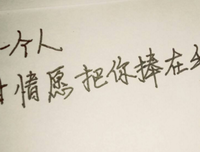 一个人
情愿把你捧在